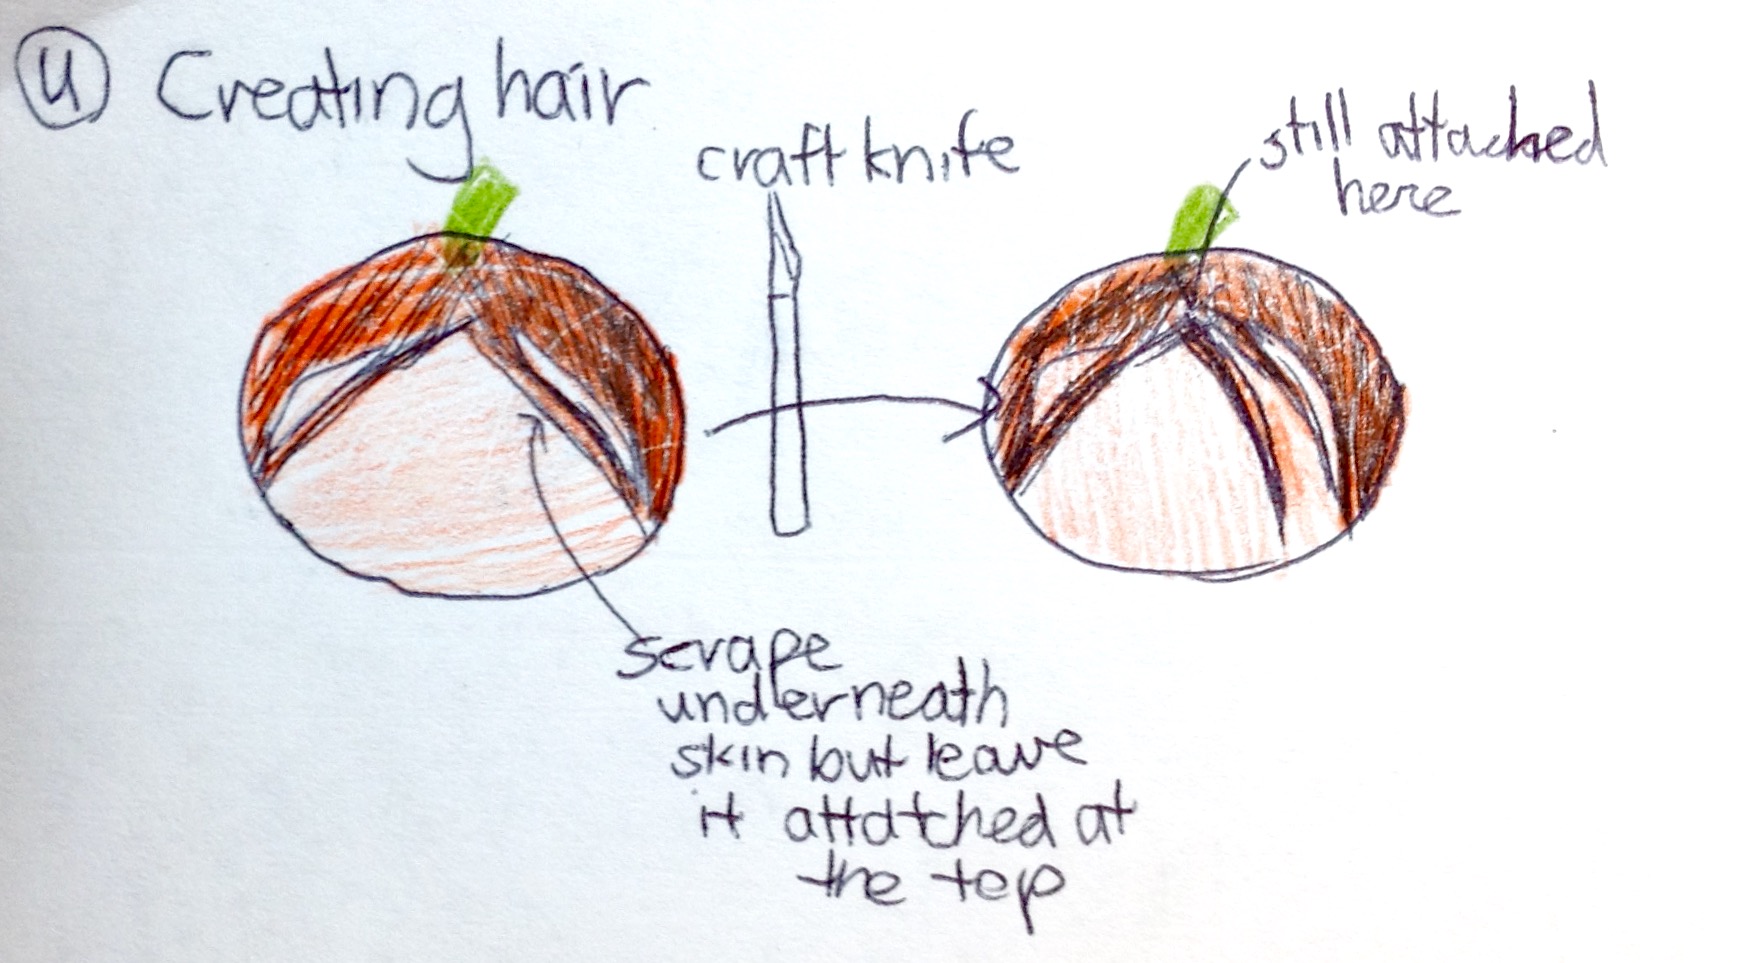 4 Creating hair
craft knife
still attached
here
scrape
underneath
skin but leave
it attatched at
the top